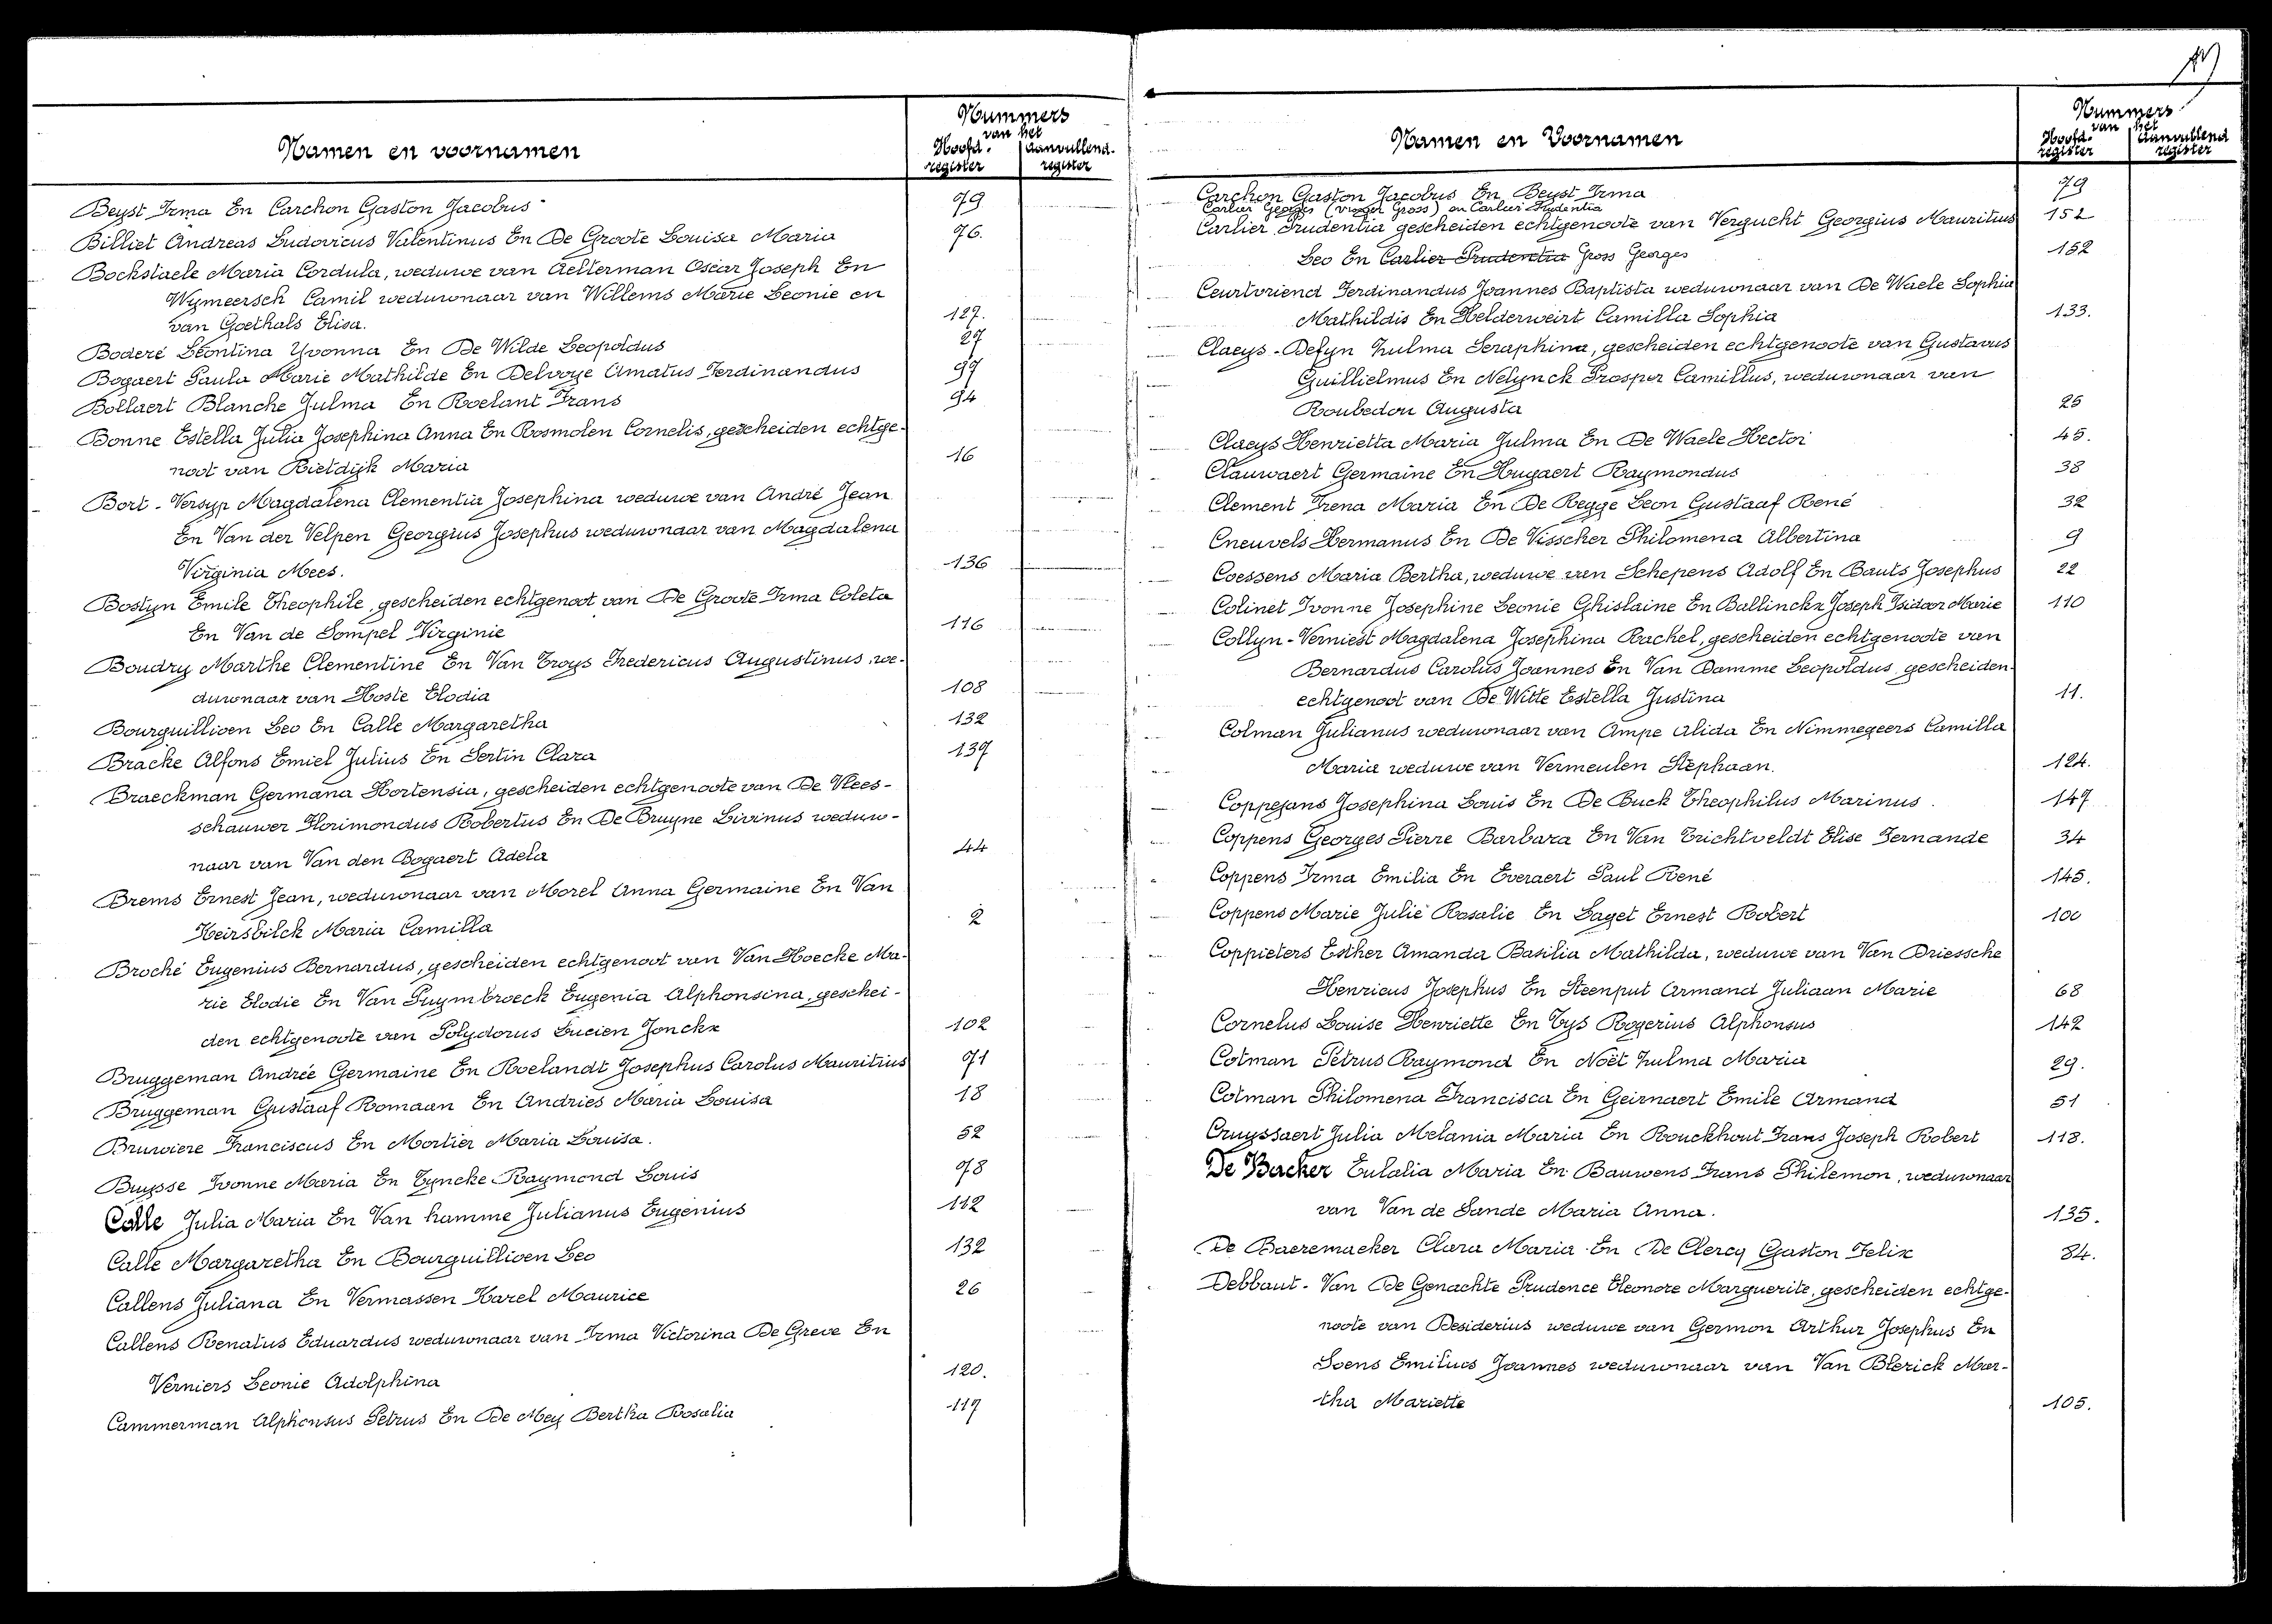 Namen en voornamen
Nummers
van het
Hoofd-register
aanvullend-register
Beyst Irma En Carchon Gaston Jacobus 79
Billiet Andreas Ludovicus Valentinus En De Groote Louisa Maria 76.
Bockstaele Maria Cordula, weduwe van Aelterman Oscar Joseph En
Wymeersch Camil weduwnaar van Willems Marie Leonie en
van Goethals Elisa. 127.
Boderé Leontina Yvonna En De Wilde Leopoldus 27
Bogaert Paula Marie Mathilde En Delvoye Amatus Ferdinandus 97
Bollaert Blanche Julma En Roelant Frans 94
Bonne Estella Julia Josephina Anna En Rosmolen Cornelis, gescheiden echtge-
noot van Rietdijk Maria 16
Bort - Versyp Magdalena Clementia Josephina weduwe van André Jean
En Van der Velpen Georgius Josephus weduwnaar van Magdalena
Virginia Mees. 136
Bostyn Emile Theophile, gescheiden echtgenoot van De Groote Irma Coleta
En Van de Sompel Virginie 116
Boudry Marthe Clementine En Van Troys Fredericus Augustinus, we-
duwnaar van Hoste Elodia 108
Bourguillioen Leo En Calle Margaretha 132
Bracke Alfons Emiel Julius En Sertin Clara 137
Braeckman Germana Hortensia, gescheiden echtgenoote van De Vlees-
schauwer Florimondus Robertus En De Bruyne Livinus weduw-
naar van Van den Bogaert Adela 44
Brems Ernest Jean, weduwnaar van Morel Anna Germaine En Van
Heirsbilck Maria Camilla 2
Broché Eugenius Bernardus, gescheiden echtgenoot van Van Hoecke Ma-
rie Elodie En Van Puymbroeck Eugenia Alphonsina, geschei-
den echtgenoote van Polydorus Lucien Jonckx 102
Bruggeman Andrée Germaine En Roelandt Josephus Carolus Mauritius 71
Bruggeman Gustaaf Romaan En Andries Maria Louisa 18
Bruwiere Franciscus En Mortier Maria Louisa. 52
Buysse Ivonne Maria En Tyncke Raymond Louis 78
Calle Julia Maria En Van hamme Julianus Eugenius 112
Calle Margaretha En Bourguillioen Leo 132
Callens Juliana En Vermassen Karel Maurice 26
Callens Renatus Eduardus weduwnaar van Irma Victorina De Greve En
Verniers Leonie Adolphina 120.
Cammerman Alphonsus Petrus En De Mey Bertha Rosalia 117
Namen en Voornamen
Nummers
van het
Hoofd-register
aanvullend register
Carchon Gaston Jacobus En Beyst Irma 79
Carlier Georges (vroeger Gross) en Carlier Prudentia
Carlier Prudentia gescheiden echtgenoote van Vergucht Georgius Mauritius 152
Leo En Carlier Prudentia Gross Georges 152
Ceurtvriend Ferdinandus Joannes Baptista weduwnaar van De Waele Sophia
Mathildis En Helderweirt Camilla Sophia 133.
Claeys - Defyn Zulma Seraphina, gescheiden echtgenoote van Gustavus
Guillielmus En Nelynck Prosper Camillus, weduwnaar van
Roubedou Augusta 25
Claeys Henrietta Maria Julma En De Waele Hector 45.
Clauwaert Germaine En Hugaert Raymondus 38
Clement Irena Maria En De Regge Leon Gustaaf René 32
Cneuvels Hermanus En De Visscher Philomena Albertina 9
Coessens Maria Bertha, weduwe van Schepens Adolf En Bauts Josephus 22
Colinet Ivonne Josephine Leonie Ghislaine En Ballinckx Joseph Isidoor Marie 110
Collyn - Verniest Magdalena Josephina Rachel, gescheiden echtgenoote van
Bernardus Carolus Joannes En Van Damme Leopoldus, gescheiden
echtgenoot van De Witte Estella Justina 11.
Colman Julianus weduwnaar van Ampe Alida En Nimmegeers Camilla
Maria weduwe van Vermeulen Stephaan. 124.
Coppejans Josephina Louis En De Buck Theophilus Marinus. 147
Coppens Georges Pierre Barbara En Van Trichtveldt Elise Fernande 34
Coppens Irma Emilia En Everaert Paul René 145.
Coppens Marie Julie Rosalie En Laget Ernest Robert 100
Coppieters Esther Amanda Basilia Mathilda, weduwe van Van Driessche
Henricus Josephus En Steenput Armand Juliaan Marie 68
Cornelus Louise Henriette En Tys Rogerius Alphonsus 142
Cotman Petrus Raymond En Noët Zulma Maria 29.
Cotman Philomena Francisca En Geirnaert Emile Armand 51
Cruyssaert Julia Melania Maria En Rouckhout Frans Joseph Robert 118.
De Backer Eulalia Maria En Bauwens Frans Philemon, weduwnaar
van Van de Sande Maria Anna. 135.
De Baeremaeker Clara Maria En De Clercq Gaston Felix 84.
Debbaut - Van De Genachte Prudence Eleonore Marguerite, gescheiden echtge-
noote van Desiderius weduwe van Germon Arthur Josephus En
Soens Emilius Joannes weduwnaar van Van Blerick Mar-
tha Mariette 105.